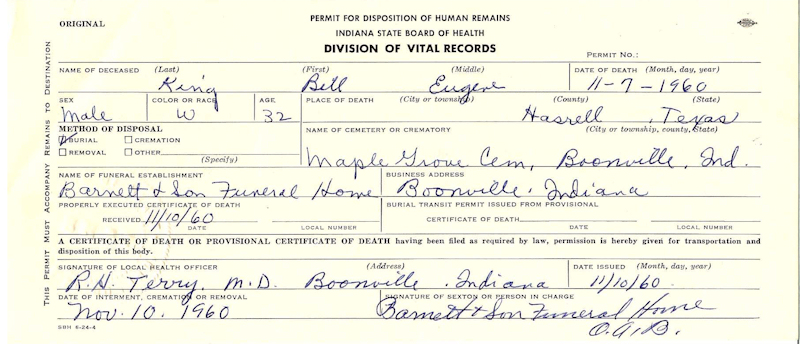 ORIGINAL
PERMIT FOR DISPOSITION OF HUMAN REMAINS
INDIANA STATE BOARD OF HEALTH
DIVISION OF VITAL RECORDS
PERMIT NO.:
THIS PERMIT MUST ACCOMPANY REMAINS TO DESTINATION
NAME OF DECEASED (Last) (First) (Middle) DATE OF DEATH (Month, day, year)
King Bill Eugene 11-7-1960
SEX COLOR OR RACE AGE PLACE OF DEATH (City or township) (County) (State)
Male W 32 Hasrell, Texas
METHOD OF DISPOSAL NAME OF CEMETERY OR CREMATORY (City or township, county, State)
BURIAL CREMATION
REMOVAL OTHER (Specify)
Maple Grove Cem, Boonville, Ind.
NAME OF FUNERAL ESTABLISHMENT BUSINESS ADDRESS
Barnett & Son Funeral Home Boonville, Indiana
PROPERLY EXECUTED CERTIFICATE OF DEATH BURIAL TRANSIT PERMIT ISSUED FROM PROVISIONAL
RECEIVED 11/10/60 CERTIFICATE OF DEATH
DATE LOCAL NUMBER DATE LOCAL NUMBER
A CERTIFICATE OF DEATH OR PROVISIONAL CERTIFICATE OF DEATH having been filed as required by law, permission is hereby given for transportation and
disposition of this body.
SIGNATURE OF LOCAL HEALTH OFFICER (Address) DATE ISSUED (Month, day, year)
R.H. Terry, M.D. Boonville, Indiana 11/10/60.
DATE OF INTERMENT, CREMATION OR REMOVAL SIGNATURE OF SEXTON OR PERSON IN CHARGE
Nov. 10. 1960 Barnett & Son Funeral Home
O.A.B.
SBH 6-24-4